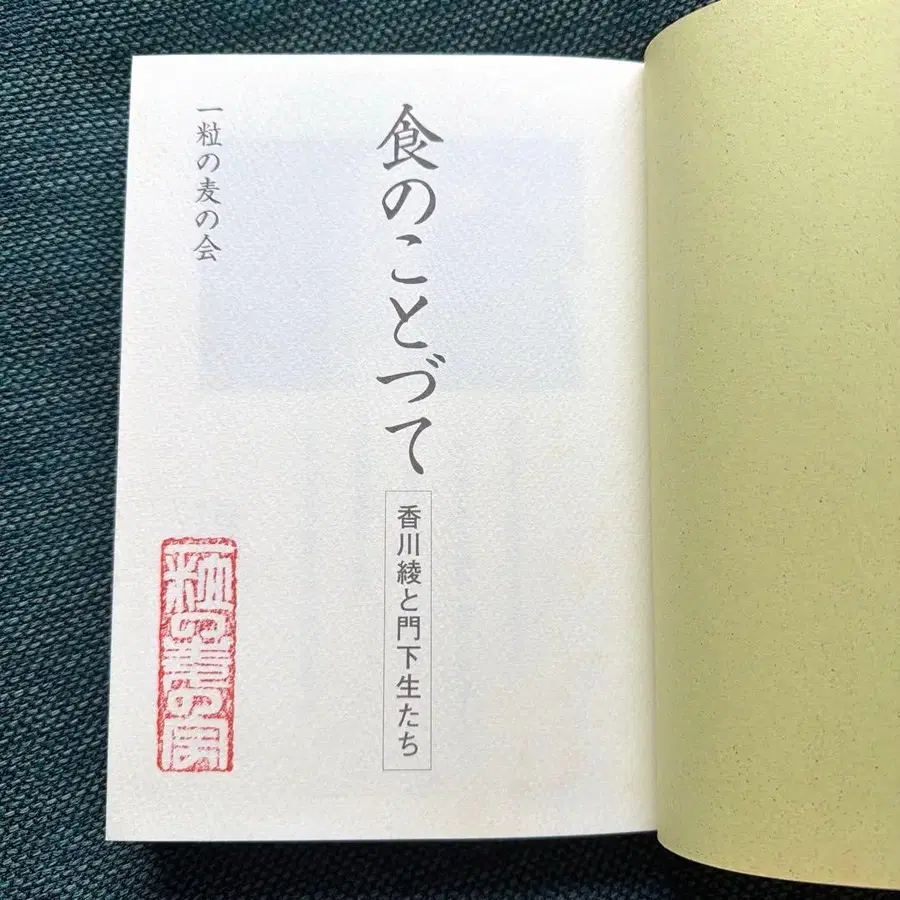 食のことづて
香川綾と門下生たち
一粒の麦の会
一粒の麦の会